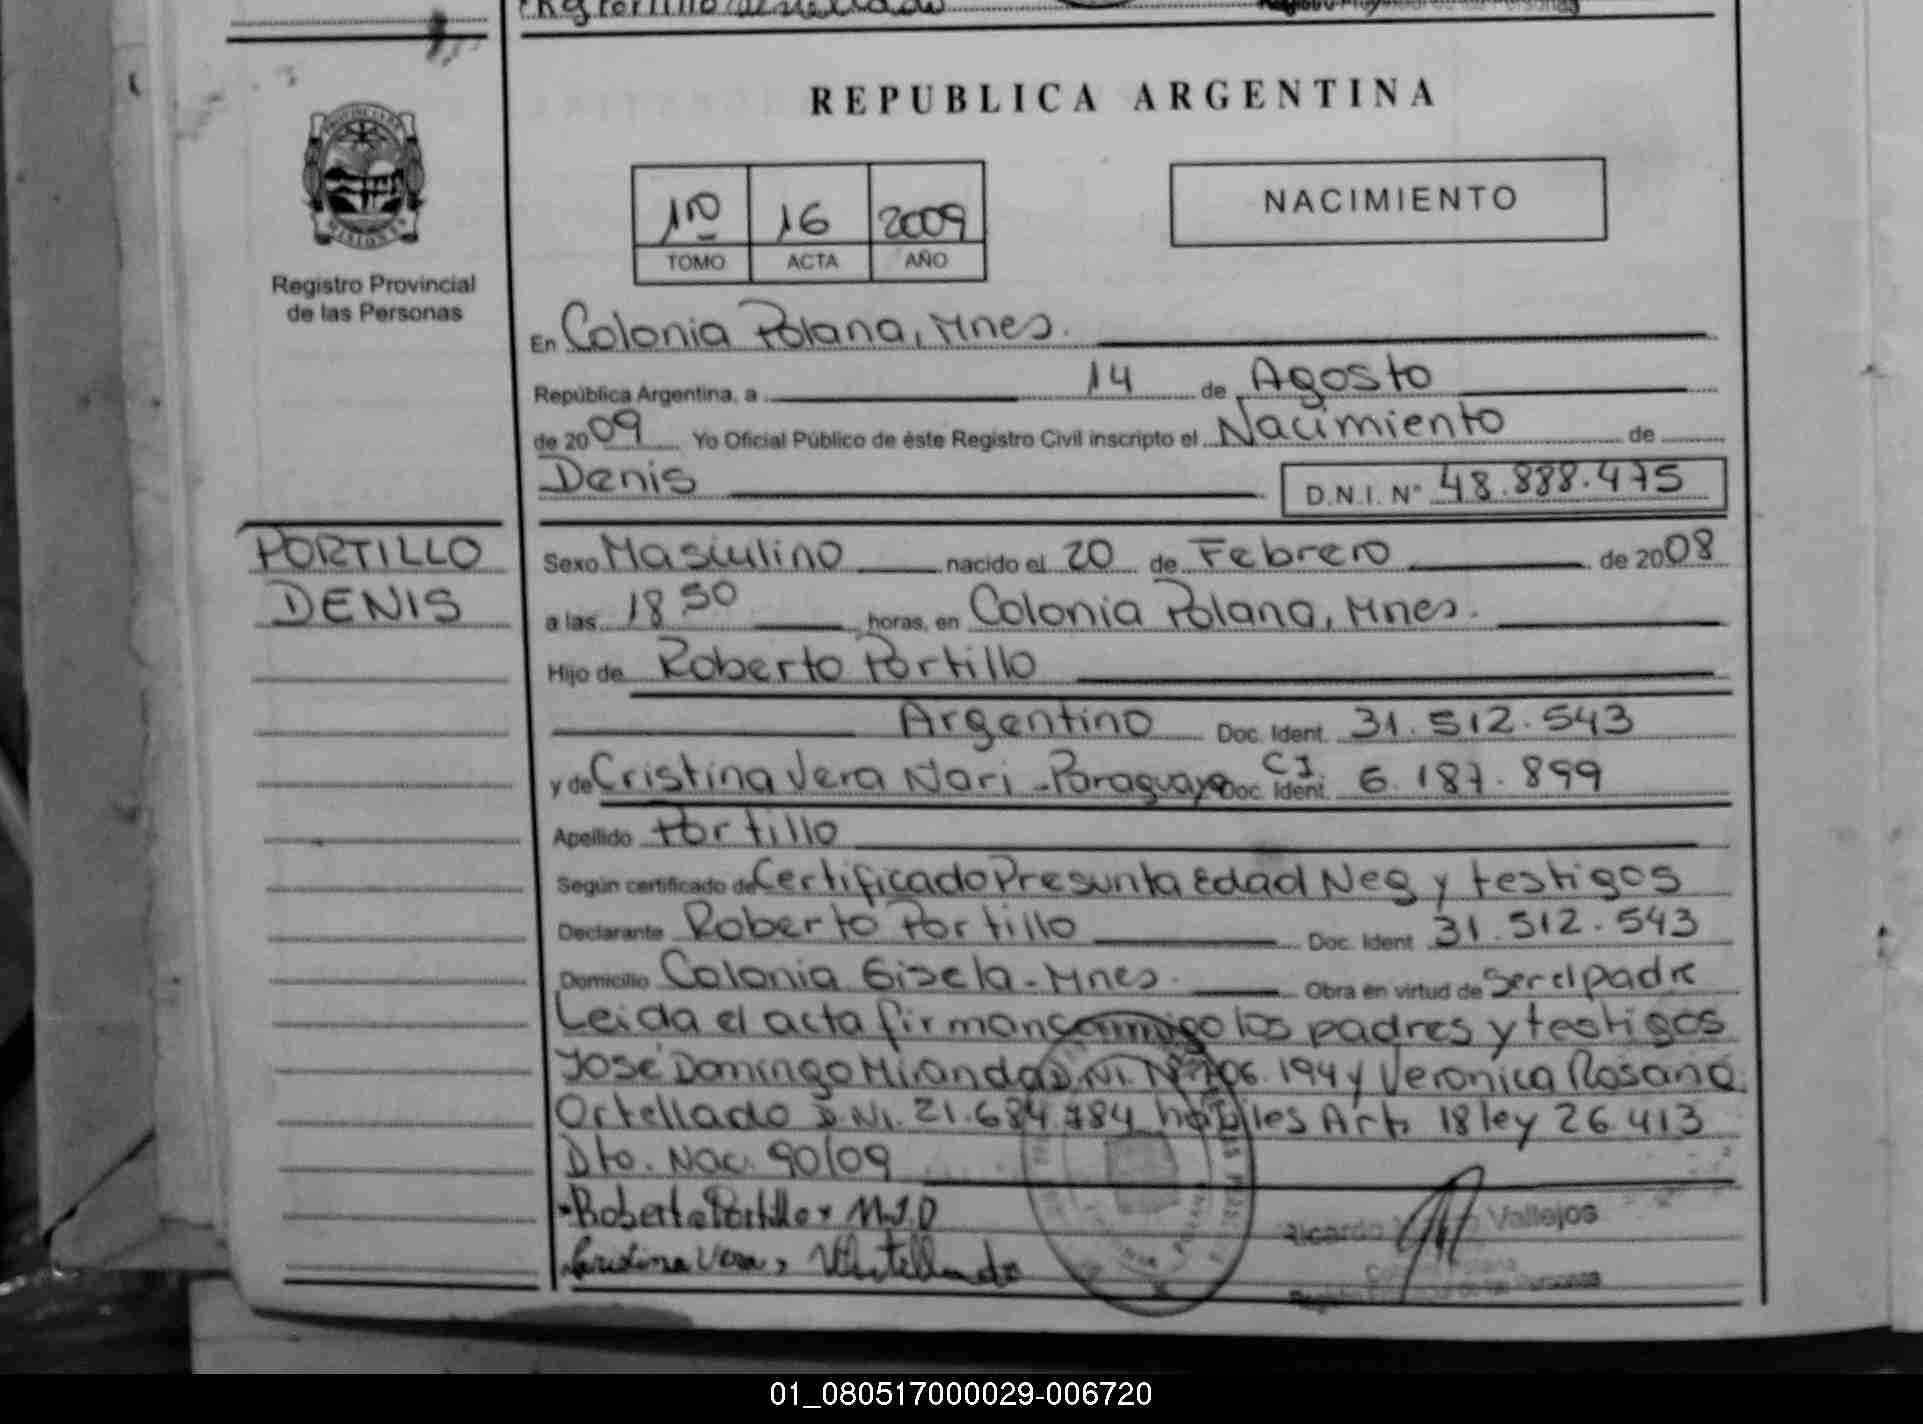 REPUBLICA ARGENTINA
PROVINCIA DE
MISIONES
Registro Provincial
de las Personas
1ro 16 2009
TOMO ACTA AÑO
NACIMIENTO
En Colonia Polana, Mnes.
República Argentina, a 14 de Agosto
de 2009 Yo Oficial Público de éste Registro Civil inscripto el Nacimiento de
Denis D.N.I. Nº 48.888.475
PORTILLO
DENIS
Sexo Masculino nacido el 20 de Febrero de 2008
a las 18 50 horas, en Colonia Polana, Mnes.
Hijo de Roberto Portillo
Argentino Doc. Ident. 31.512.543
y de Cristina Vera Nari - Paraguaya Doc. Ident. C I. 6.187.899
Apellido Portillo
Según certificado de Certificado Presunta Edad Neg y testigos
Declarante Roberto Portillo Doc. Ident 31.512.543
Domicilio Colonia Gisela - Mnes. Obra en virtud de Ser el padre
Leida el acta firman conmigo los padres y testigos
José Domingo Miranda D.NI. Nº 06.194 y Veronica Rosana
Ortellado D.NI. 21.684.784 habiles Art. 18 ley 26.413
Dto. Nac. 90/09
Roberto Portillo M.J.D
Cristina Vera,
Ricardo Vallejos
01_080517000029-006720